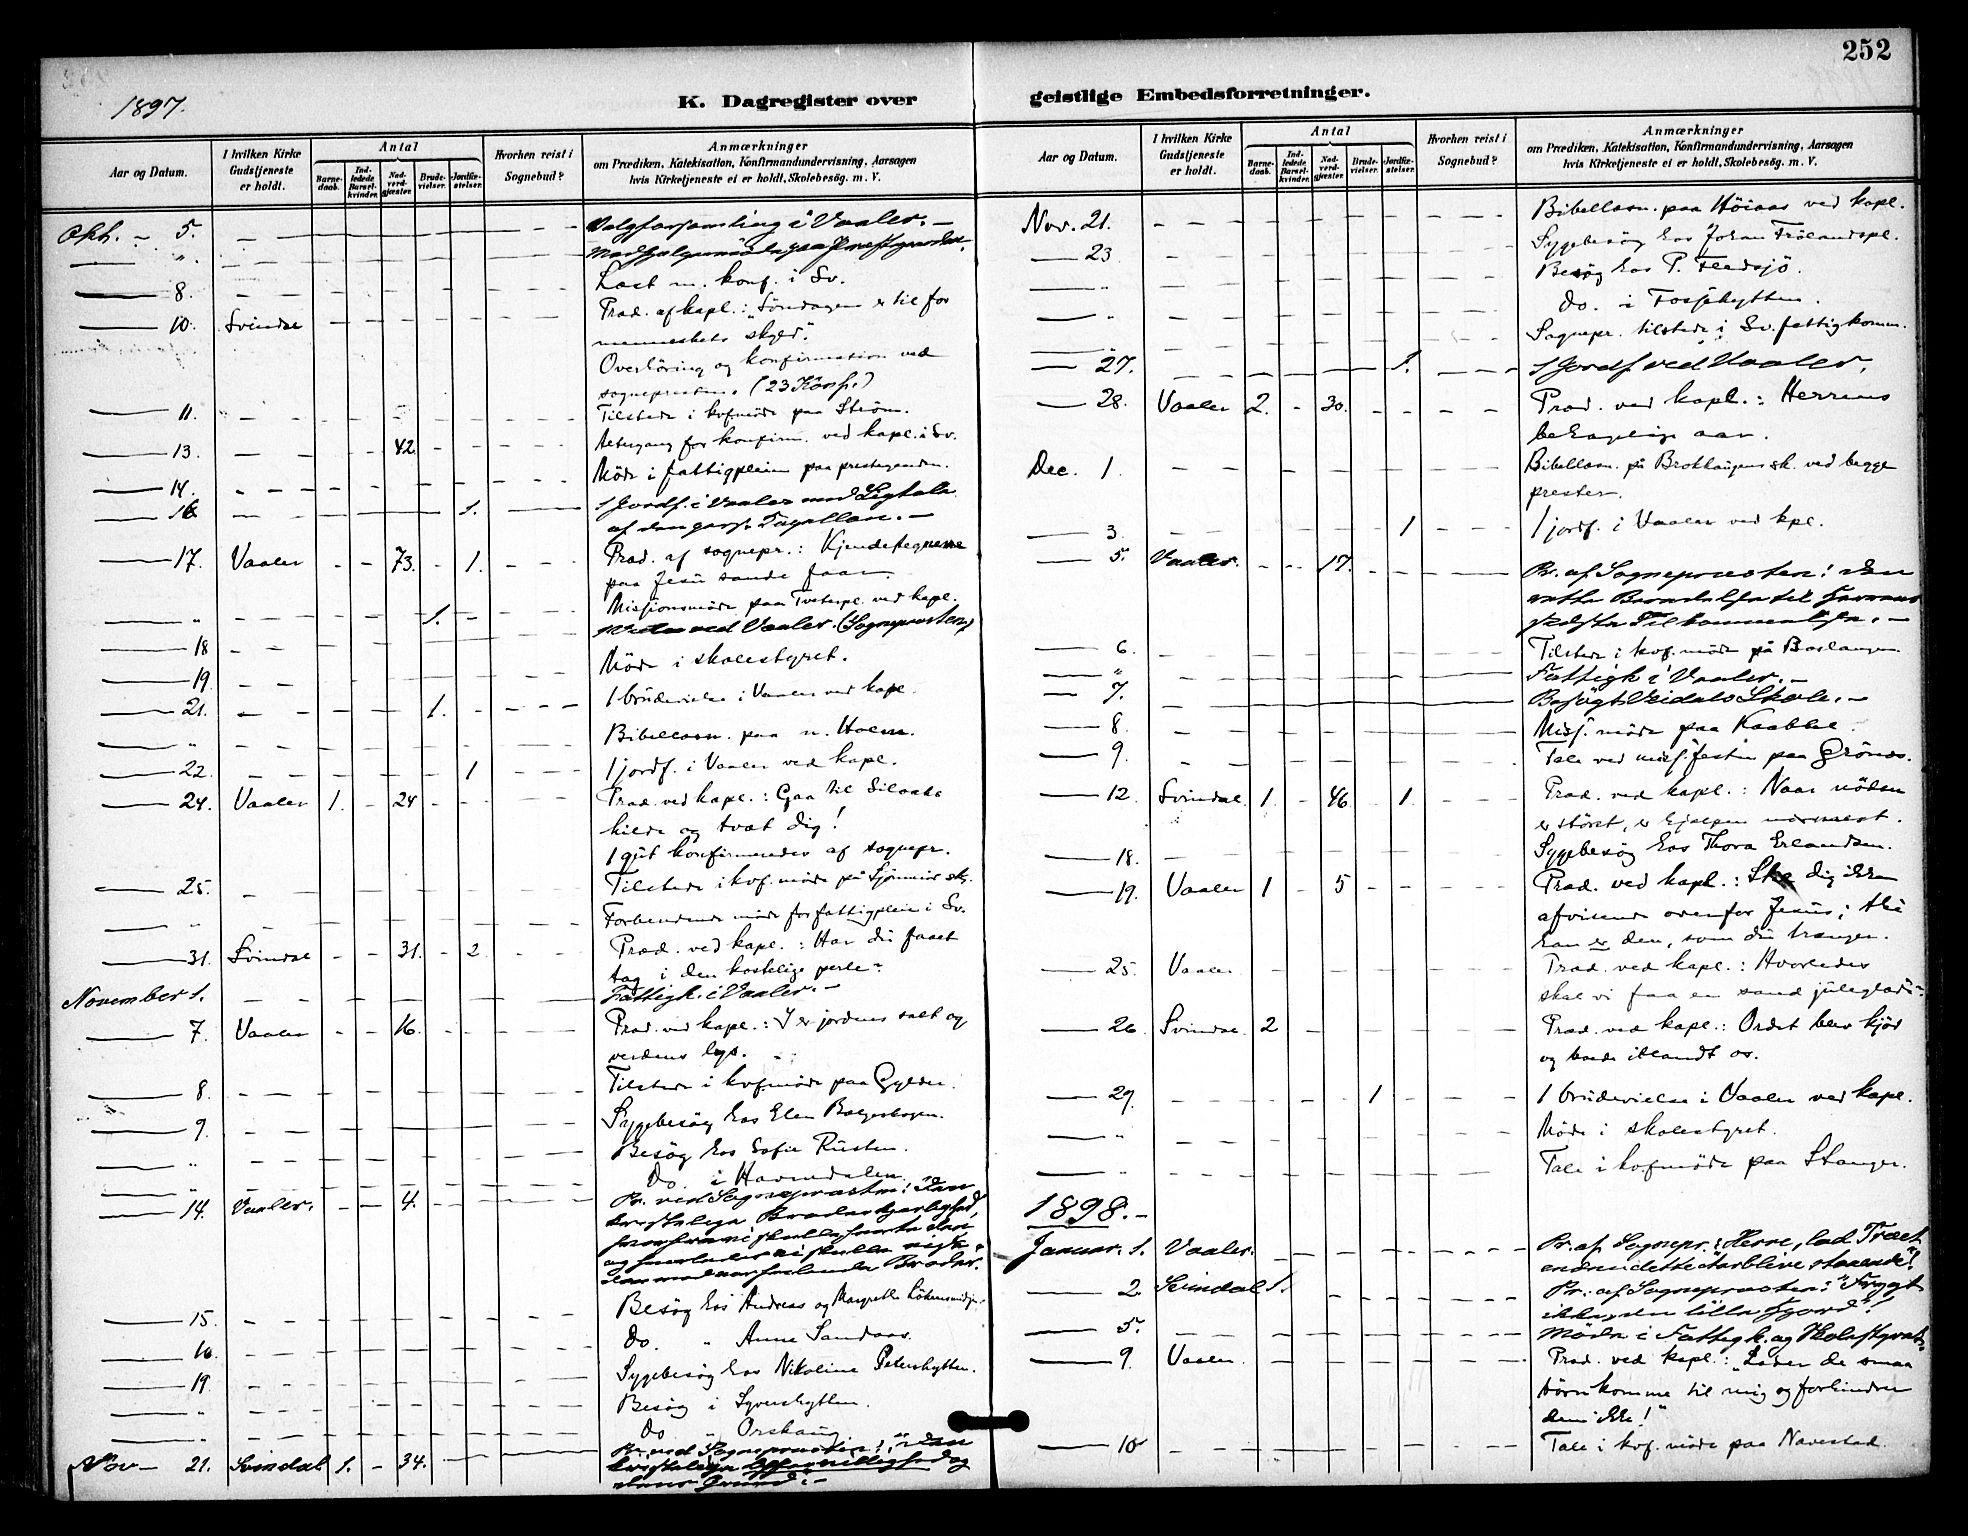 252
1897.
K. Dagregister over geistlige Embedsforretninger.
Aar og Datum. I hvilken Kirke Gudstjeneste er holdt. Antal Barnedaab. Indledede Barselkvinder. Nadverdgjæster. Brudevielser. Jordfæstelser. Hvorhen reist i Sognebud? Anmærkninger om Prædiken, Katekisation, Konfirmandundervisning, Aarsagen hvis Kirketjeneste ei er holdt, Skolebesøg. m. V.
Okt. 5. Valgforsamling i Vaaler. -
" 
8. Læst m. konf. i Sv.
10. Svindal Præd. af kapl.: "Söndagen er til for
menneskets skyld."
Overhöring og konfirmation ved
sognepresten. (23 Konf.)
11. Tilstede i kvfmöde paa Ström.
13. 42. Altergang for konfirm. ved kapl. i Sv.
14. Möde i fattigpleien paa prestegaarden.
16 1. 1 Jordf. i Vaaler med Ligtale
17. Vaaler 73. 1. Præd. af sognepr.: Kjendetegnene
paa Jesu sande faar.
Missionsmöde paa ved kapl.
" 1. 1 Vielse ved Vaaler. (Sognepresten)
18 Möde i skolestyret.
19.
21. 1. 1 brudevielse i Vaaler ved kapl.
" Bibellæsn. paa n. Holm.
22. 1 1 jordf. i Vaaler ved kapl.
24. Vaaler 1. 24 Præd. ved kapl.: Gaa til Siloahs
kilde og tvæt dig!
1 gut konfirmeredes af sognepr.
25. Tilstede i kvf. möde på
" Forberedende möde for fattigpleie i Sv.
31. Svindal 31. 2. Præd. ved kapl.: Har du faaet
tag i den kostelige perle?
November 1. Fattigk. i Vaaler. -
7. Vaaler 16. Præd. ved kapl.: I er jordens salt og
verdens lys.
8. Tilstede i kvfmöde paa Gylder.
9. Sygebesög hos Elen
" Besög hos Sofie Rusten.
" Do. i Havnedalen.
14. Vaaler. 4. Pr. ved Sognepræsten: Den
kristelige Broderkjærlighed,
15. Besög hos Andreas og Margrethe
16. Do. " Anne Sandaas.
19. Sygebesög hos Nikoline Petershytten.
" Besög i Syvershytten.
" Do " Orshaug
Nov 21. Svindal 1. 34. Pr. ved Sognepræsten: "Den
kristelige Offervillighed og
dens Grund". -
Aar og Datum. I hvilken Kirke Gudstjeneste er holdt. Antal Barnedaab. Indledede Barselkvinder. Nadverdgjæster. Brudevielser. Jordfæstelser. Hvorhen reist i Sognebud? Anmærkninger om Prædiken, Katekisation, Konfirmandundervisning, Aarsagen hvis Kirketjeneste ei er holdt, Skolebesøg. m. V.
Nov. 21. Bibellæsn. paa Höiaas ved kapl.
23 Sygebesög hos Johan Frölandspl.
" Besög hos P. Fledsjö.
" Do. i Fossehytten.
" Sognepr. tilstede i Sv. fattigkomm.
27. 1. 1 Jordf. ved Vaaler.
28. Vaaler 2. 30. Præd. ved kapl.: Herrens
behagelige aar.
Dec. 1. Bibellæsn. på Brokhaugen sk. ved begge
prester.
3. 1 1 jordf. i Vaaler ved kpl.
5. Vaaler. 17. Pr. af Sognepræsten: Den
rette Beredelse til Herrens
sidste Tilkommelse. -
6. Tilstede i kvf. möde på Baslangen
" Fattigk. i Vaaler. -
7. Besögt Veidals Skole. -
8. Miss. möde paa Kabbel.
9. Tale ved miss. festen paa Grönaas.
12. Svindal. 1. 46. 1. Præd. ved kapl.: Naar nöden
er störst, er hjælpen nærmest.
18. Sygebesög hos Thora Erlandsen.
19. Vaaler 1 5 Præd. ved kapl.: Stø dig ikke
afvisende overfor Jesus; thi
han er den, som du trænger.
25. Vaaler Præd. ved kapl.: Hvorledes
skal vi faa en sand juleglæde?
26. Svindal. 2 Præd. ved kapl.: Ordet blev kjöd
og boede iblandt os.
29. 1 1 brudevielse i Vaaler ved kapl.
" Möde i skolestyret.
" Tale i kvfmöde paa Stanger.
1898. -
Januar. 1. Vaaler. Pr. af Sognepr.: "Herre, lad Træet
endnu dette Aar blive staaende"!
2. Svindal 1. Pr. af Sognepræsten: "Frygt
ikke, du lille Hjord"!
5. Möde i Fattigk. og Skolestyret.
9. Vaaler. Præd. ved kapl.: "Lader de smaa
börn komme til mig og forhindrer
dem ikke!"
10 Tale i kvf. möde paa Navestad.